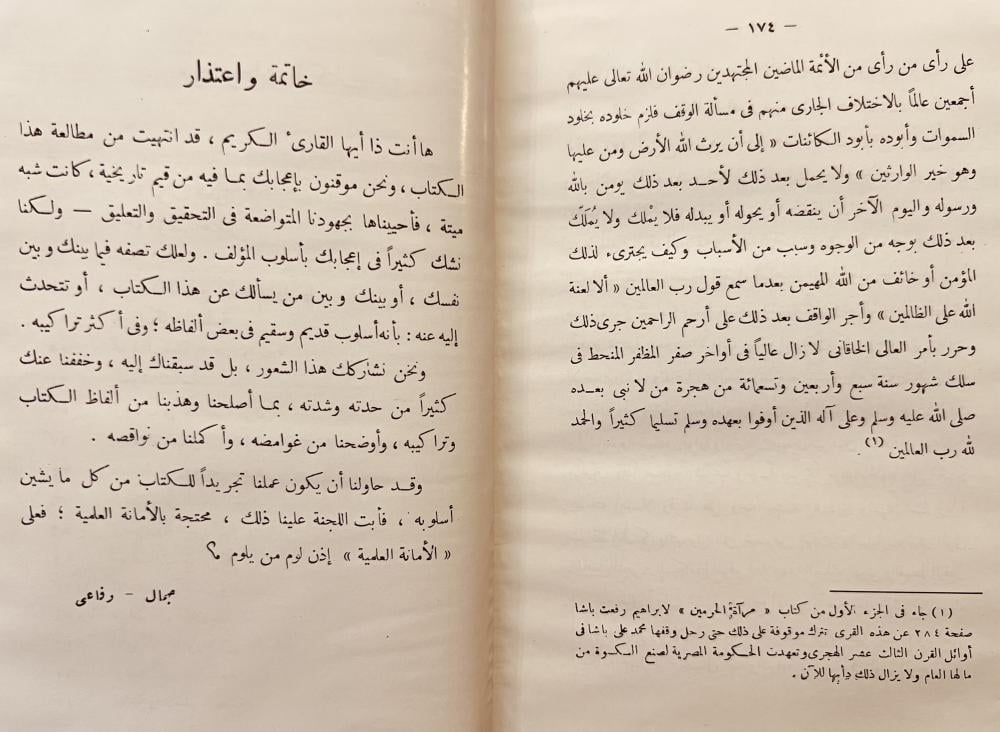 — ١٧٤ —
على رأى من رأى من الأئمة الماضين المجتهدين رضوان الله تعالى عليهم
أجمعين عالماً بالاختلاف الجارى منهم فى مسألة الوقف فلزم خلوده بخلود
السموات وأبوده بأبود الكائنات « إلى أن يرث الله الأرض ومن عليها
وهو خير الوارثين » ولا يحمل بعد ذلك لأحد بعد ذلك يومن بالله
ورسوله واليوم الآخر أن ينقضه أو يحوله أو يبدله فلا يمْلك ولا يُملَّك
بعد ذلك بوجه من الوجوه وسبب من الأسباب وكيف يجترىء لذلك
المؤمن أو خائف من الله المهيمن بعدما سمع قول رب العالمين « ألا لعنة
الله على الظالمين » وأجر الواقف بعد ذلك على أرحم الراحمين جرى ذلك
وحرر بأمر العالى الخاقانى لا زال عالياً فى أواخر صفر المظفر المنحط فى
سلك شهور سنة سبع وأربعين وتسعمائة من هجرة من لا نبى بعده
صلى الله عليه وسلم وعلى آله الذين أوفوا بعهده وسلم تسليما كثيراً والحمد
لله رب العالمين (١) .
(١) جاء فى الجزء الأول من كتاب « مرآة الحرمين » لابراهيم رفعت باشا
صفحة ٢٨٤ عن هذه القرى تترك موقوفة على ذلك حتى رحل وقفها محمد على باشا فى
أوائل القرن الثالث عشر الهجرى وتعهدت الحكومة المصرية لصنع الكسوة من
مالها العام ولا يزال ذلك دأبها للآن .
خاتمة واعتذار
ها أنت ذا أيها القارئ الكريم ، قد انتهيت من مطالعة هذا
الكتاب ، ونحن موقنون بإعجابك بما فيه من قيم تاريخية ، كانت شبه
ميتة ، فأحييناها بجهودنا المتواضعة فى التحقيق والتعليق — ولكنا
نشك كثيراً فى إعجابك بأسلوب المؤلف . ولعلك تصفه فيما بينك وبين
نفسك ، أو بينك وبين من يسألك عن هذا الكتاب ، أو تتحدث
إليه عنه : بأنه أسلوب قديم وسقيم فى بعض ألفاظه ؛ وفى أكثر تراكيبه .
ونحن نشاركك هذا الشعور ، بل قد سبقناك إليه ، وخففنا عنك
كثيراً من حدته وشدته ، بما أصلحنا وهذبنا من ألفاظ الكتاب
وتراكيبه ، وأوضحنا من غوامضه ، وأكملنا من نواقصه .
وقد حاولنا أن يكون عملنا تجريداً للكتاب من كل ما يشين
أسلوبه ، فأبت اللجنة علينا ذلك ، محتجة بالأمانة العلمية ؛ فعلى
« الأمانة العلمية » إذن لوم من يلوم ؟
جمال – رفاعى